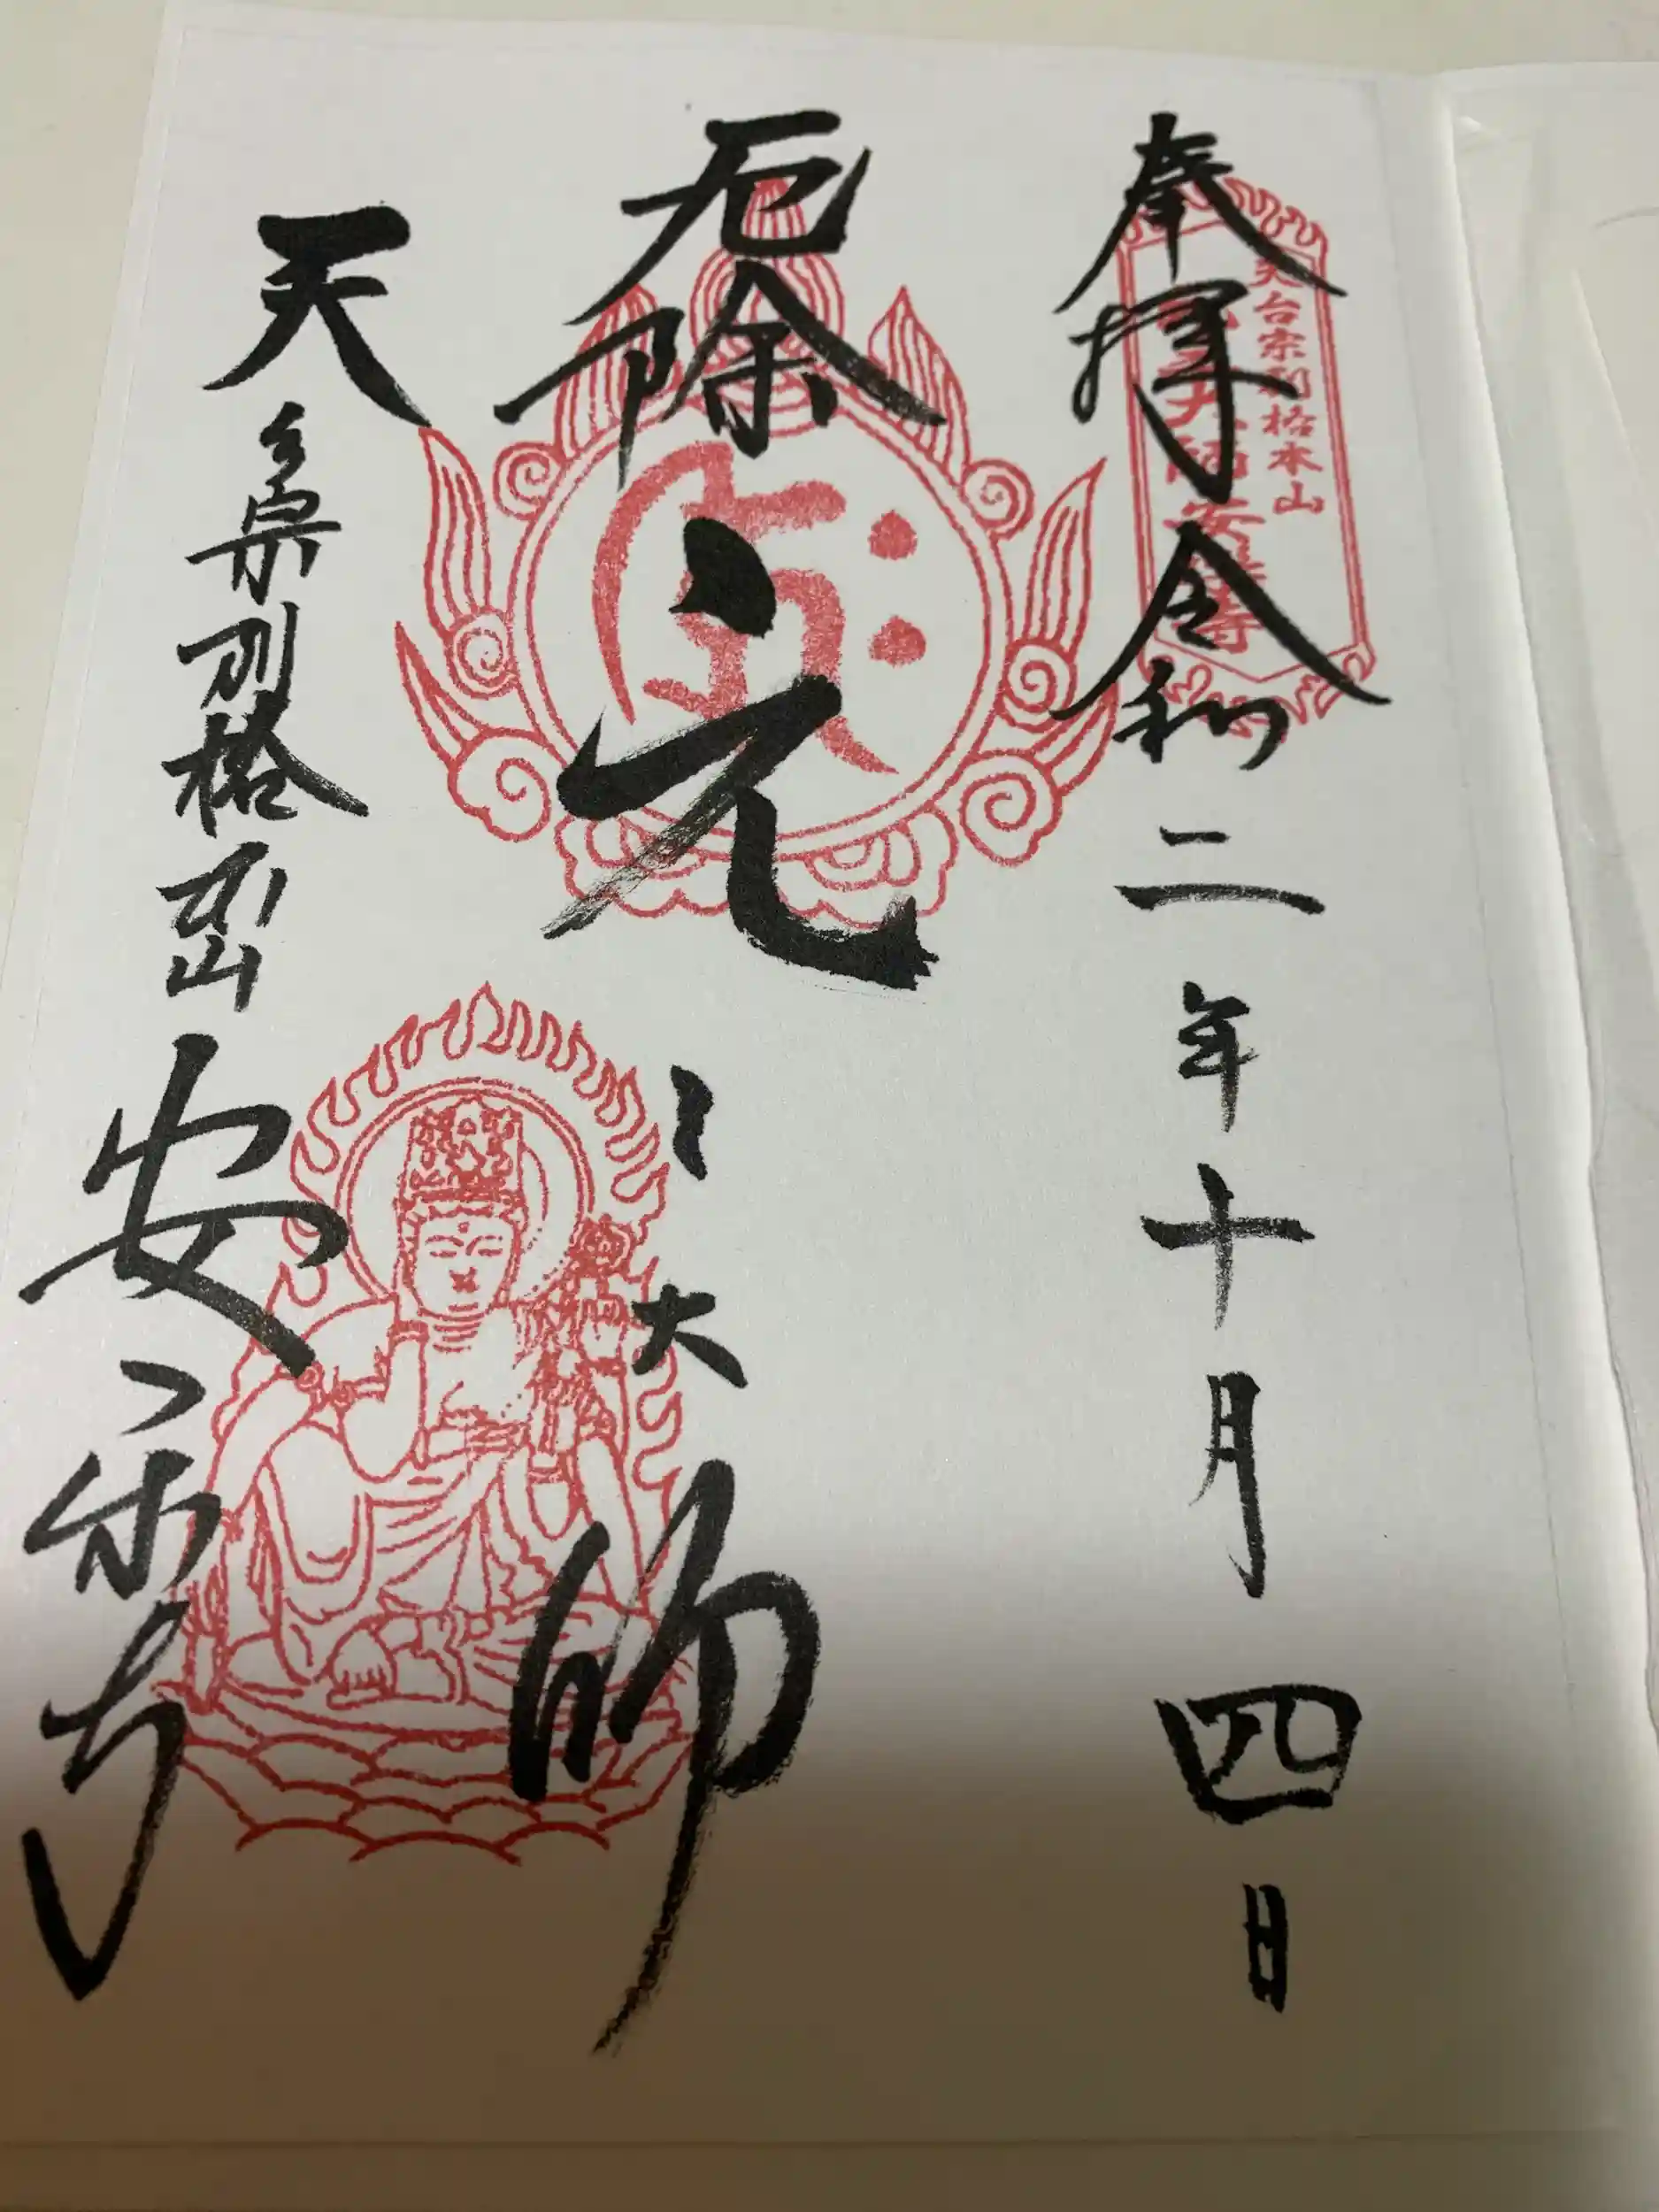 奉拝 令和二年十月四日
天台宗別格本山
元三大師安楽寺
厄除
元三大師
天台宗別格本山 安楽寺